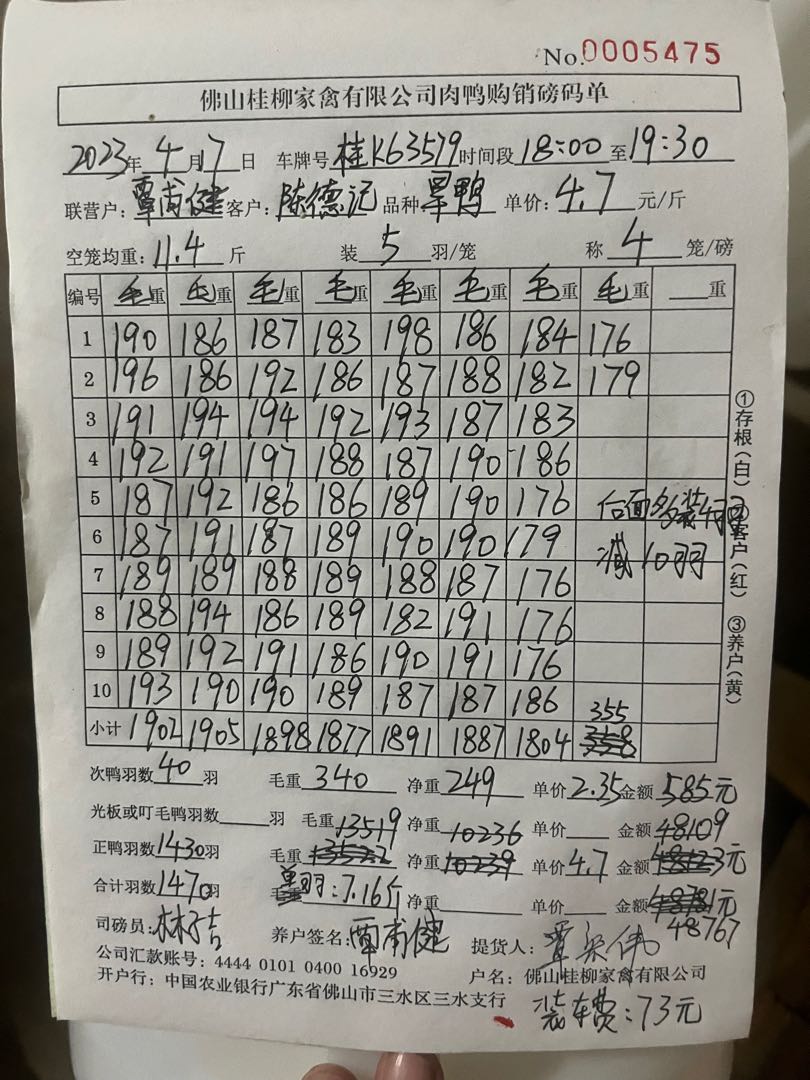 No.0005475
佛山桂柳家禽有限公司肉鸭购销磅码单
2023年4月7日 车牌号 桂K63579 时间段 18:00 至 19:30
联营户：覃甫健 客户：陈德记 品种 旱鸭 单价：4.7 元/斤
空笼均重：11.4 斤 装 5 羽/笼 称 4 笼/磅
编号 毛重 毛重 毛重 毛重 毛重 毛重 毛重 毛重 重
1 190 186 187 183 198 186 184 176
2 196 186 192 186 187 188 182 179
3 191 194 194 192 193 187 183
4 192 191 197 188 187 190 186
5 187 192 186 186 189 190 176 后面多装
6 187 191 187 189 190 190 179 减10羽
7 189 189 188 189 188 187 176
8 188 194 186 189 182 191 176
9 189 192 191 186 190 191 176
10 193 190 190 189 187 187 186 355
小计 1902 1905 1898 1877 1891 1887 1804 358
①存根(白) ②客户(红) ③养户(黄)
次鸭羽数 40 羽 毛重 340 净重 249 单价 2.35 金额 585元
光板或叮毛鸭羽数 羽 毛重 13519 净重 10236 单价 金额 48109
正鸭羽数 1430 羽 毛重 净重 10239 单价 4.7 金额 元
合计羽数 1470 羽 羽：7.16斤 净重 单价 金额 48781元
48767
司磅员：林吉 养户签名：覃甫健 提货人：覃
公司汇款账号：4444 0101 0400 16929 户名：佛山桂柳家禽有限公司
开户行：中国农业银行广东省佛山市三水区三水支行
装车费：73元